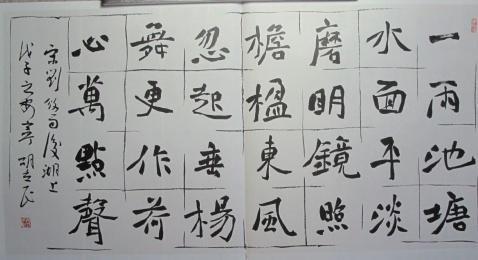 一雨池塘
水面平淡
磨明鏡照
檐楹東風
忽起垂楊
舞更作荷
心萬點聲
宋劉攽雨後湖上
戊子之